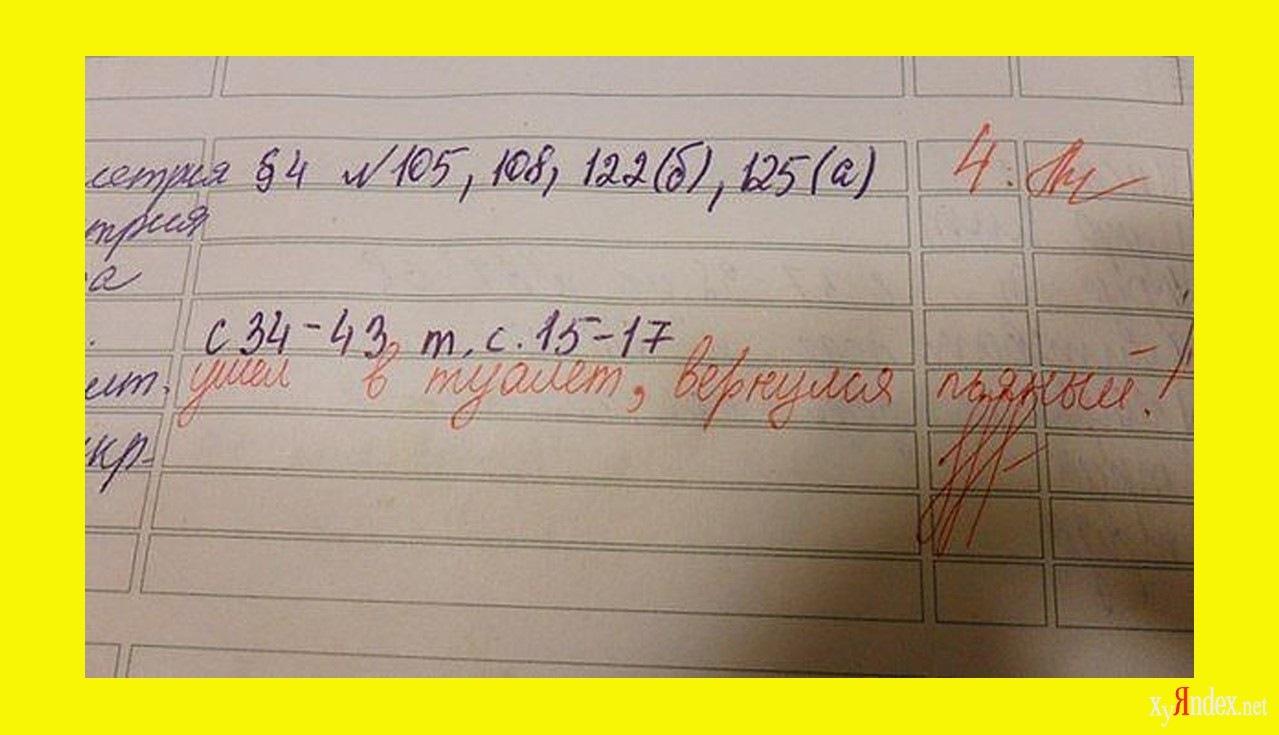 метрия §4 №105, 108, 122(б), 125(а) 4
трия
а
с 34-43 т. с. 15-17
ушел в туалет, вернулся пьяный!
кр-
xyЯndex.net